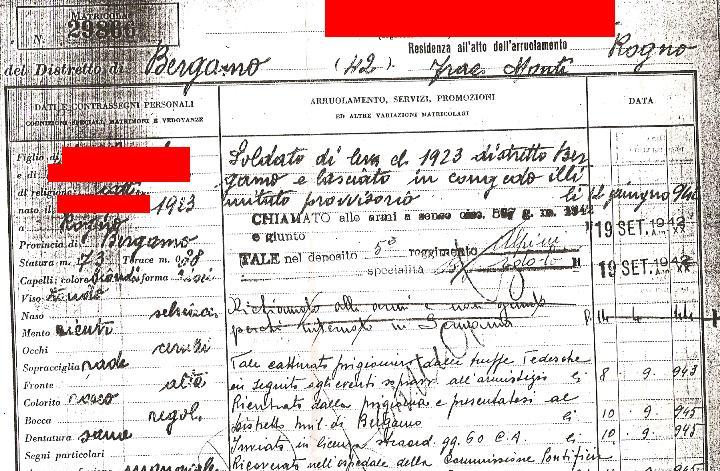 MATRICOLA
N. 29866
Residenza all'atto dell'arruolamento Rogno
del Distretto di Bergamo (42) frac. Monti
DATI E CONTRASSEGNI PERSONALI
COGNIZIONI SPECIALI, MATRIMONI E VEDOVANZE
ARRUOLAMENTO, SERVIZI, PROMOZIONI
ED ALTRE VARIAZIONI MATRICOLARI
DATA
Figlio di
e di
di religione
nato il 1923
a Rogno
Provincia di Bergamo
Statura m. 1,73 Torace m. 0,98
Capelli: colore forma lisci
Viso
Naso
Mento
Occhi
Sopracciglia rade
Fronte alta
Colorito roseo
Bocca regol.
Dentatura sana
Segni particolari
Soldato di leva cl. 1923 distretto Ber
gamo e lasciato in congedo illi
mitato provvisorio li 12 giugno 942
CHIAMATO alle armi a senso circ. g. m. 1942
e giunto 19 SET. 1942
TALE nel deposito 5° reggimento Alpini
specialità 19 SET. 1942
Richiamato alle armi e non giunto
perchè internato in Germania 14 4 44
Tale catturato prigioniero dalle truppe Tedesche
in seguito agli eventi sopravv. all'armistizio li 8 9 943
Rientrato dalla prigionia e presentatosi al
distretto mil. di Bergamo li 10 9 945
Inviato in licenza straord. gg. 60 C.A. li 10 9 945
Ricoverato nell'ospedale della Commissione Pontificia